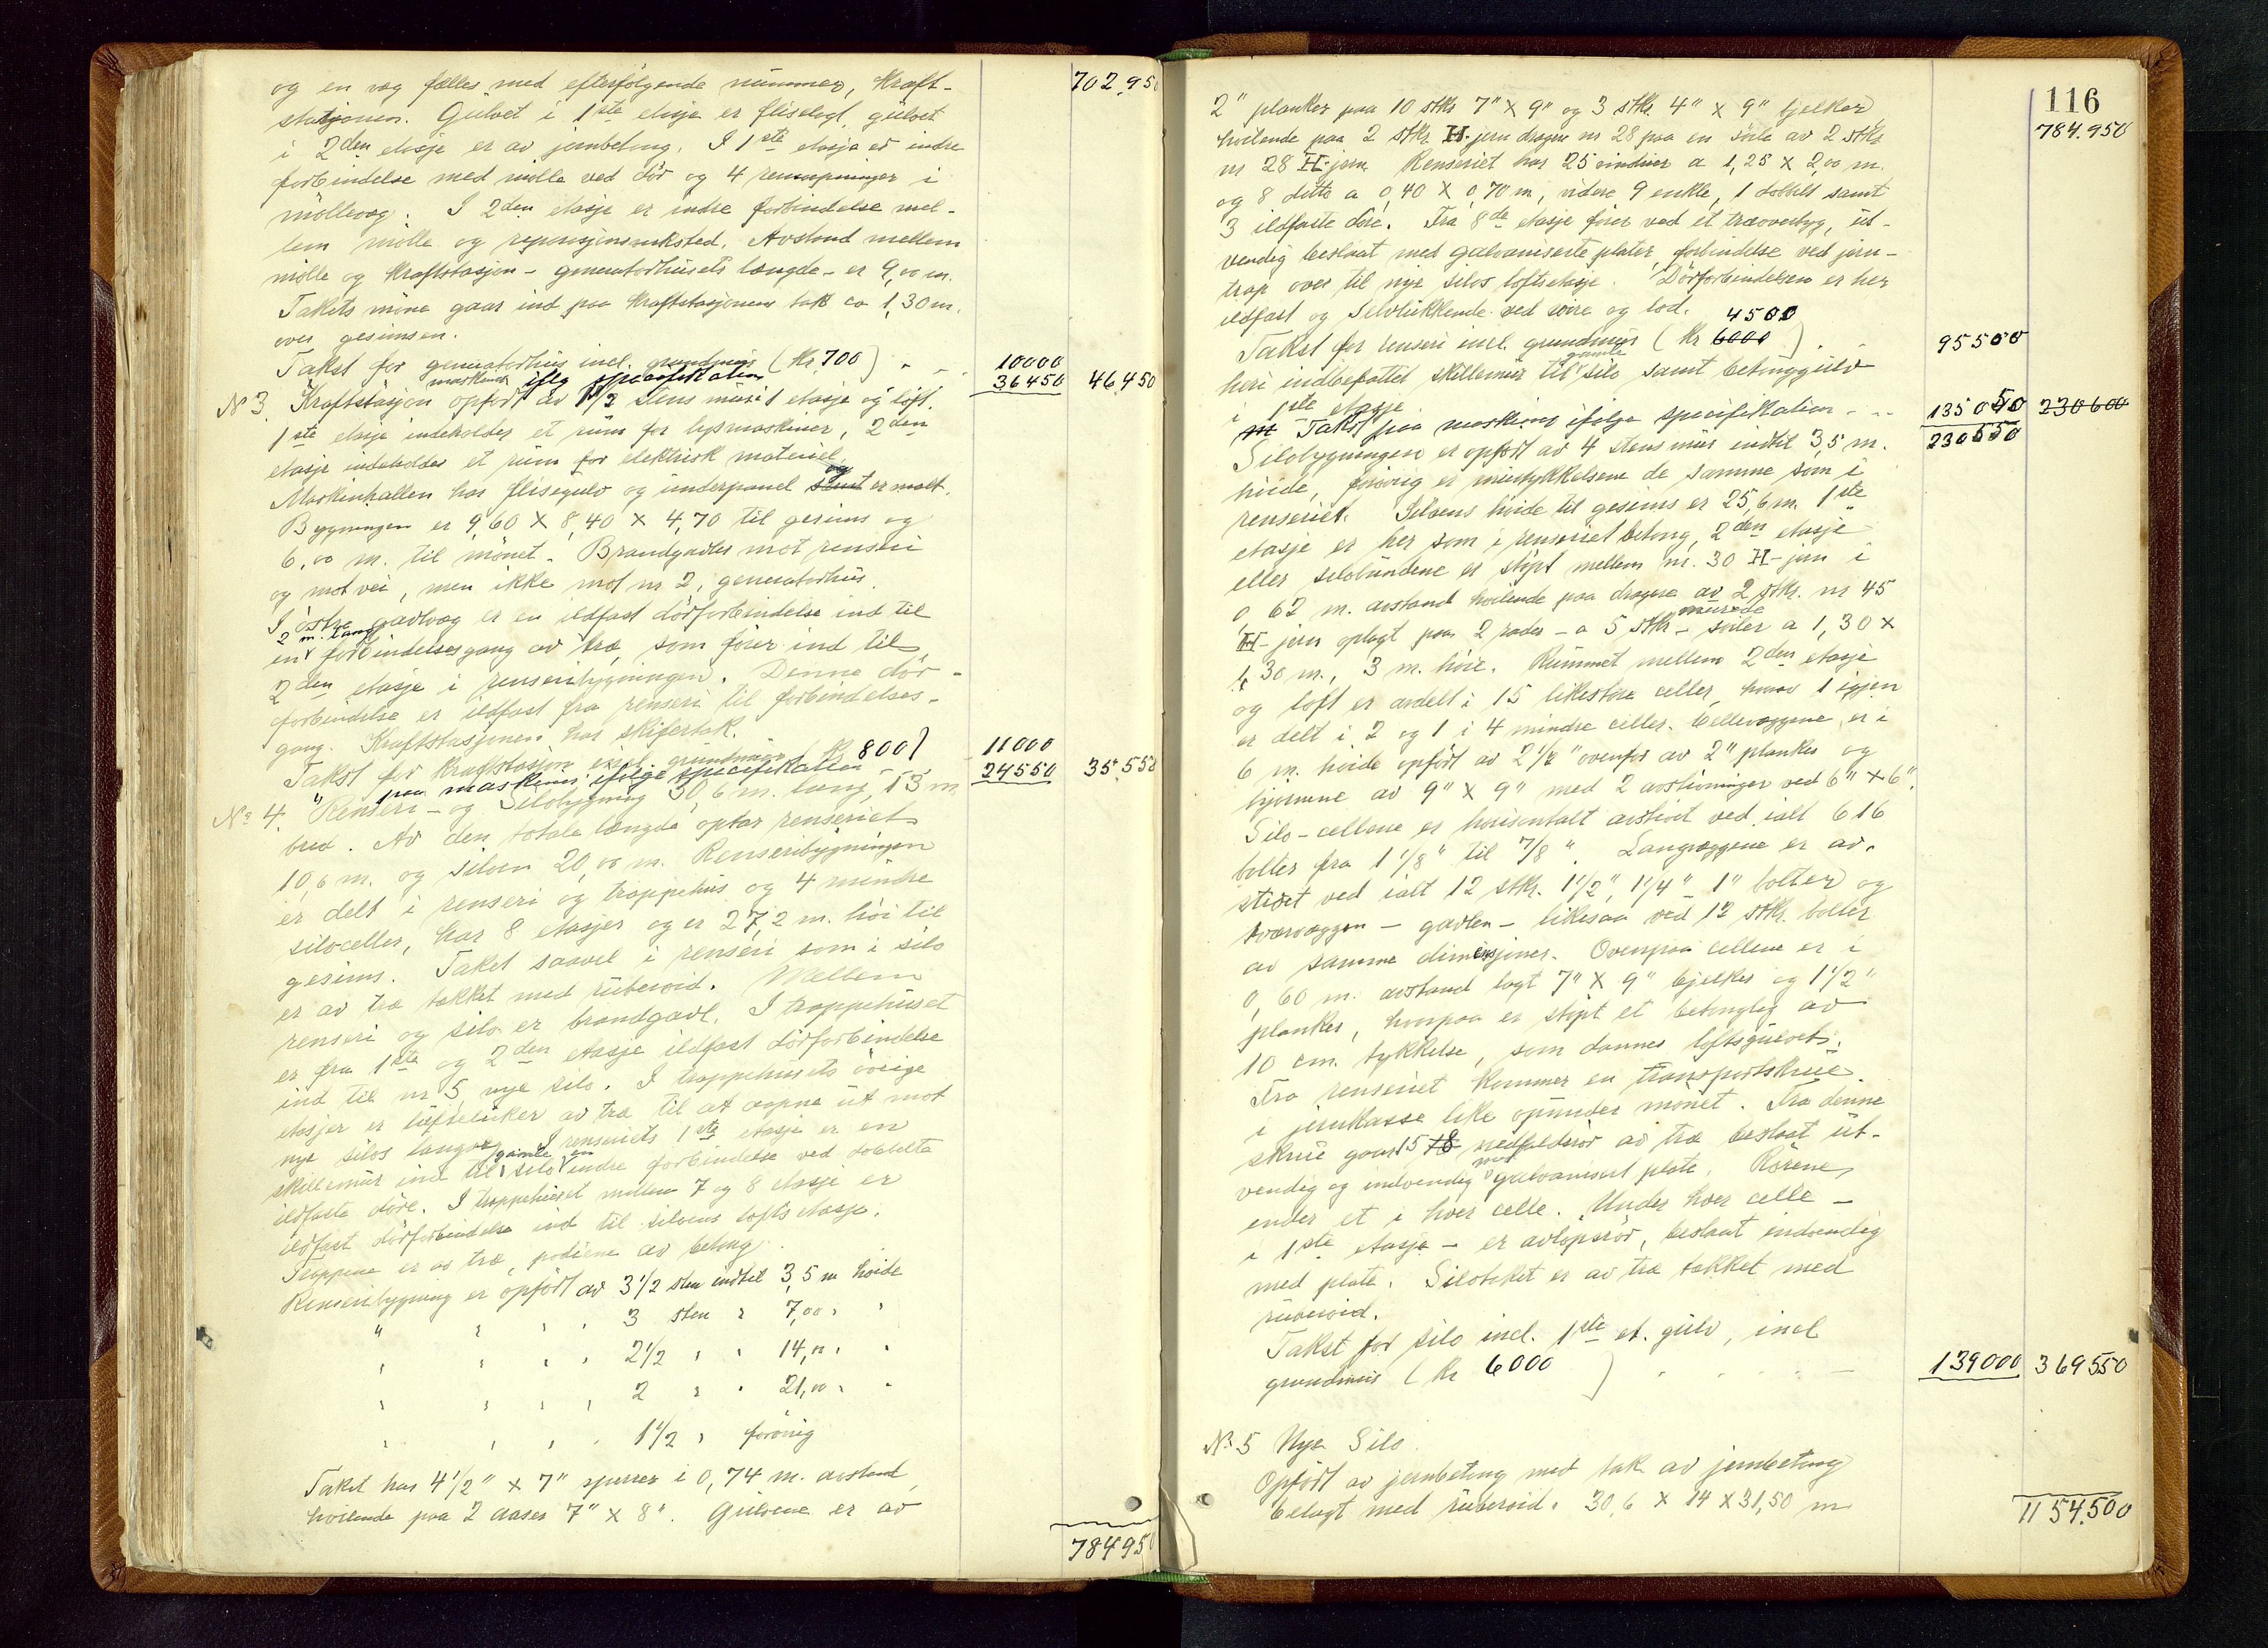 og en væg fælles med efterfølgende nummer, Kraft-
702.950
stasjonen. Gulvet i 1ste etasje er fliselagt, gulvet
i 2den etasje er av jernbetong. I 1ste etasje er indre
forbindelse med mølle ved dør og 4 remaapninger i
møllevæg. I 2den etasje er indre forbindelse mel-
lem mølle og reparasjonsverksted. Avstand mellem
mølle og Kraftstasjon – generatorhusets længde – er 9,00 m.
Takets møne gaar ind paa Kraftstasjonens tak ca 1,30 m.
over gesimsen.
Takst for generatorhus incl. grundmur (Kr 700) 10000
maskiner iflg specifikation 36450 46.450
No 3. Kraftstasjon opført av 1 1/2 stens mur i 1 etasje og loft.
1ste etasje indeholder et rum for lysmaskiner, 2den
etasje indeholder et rum for elektrisk materiel.
Maskinhallen har flisegulv og underpanel samt og er malt.
Bygningen er 9,60 X 8,40 X 4,70 til gesims og
6,00 m. til mønet. Brandgavler mot renseri
og mot vei, men ikke mot nr 2, generatorhus.
I østre gavlvæg er en ildfast dørforbindelse ind til
en 2 m. lang forbindelsesgang av træ, som fører ind til
2den etasje i renseribygningen. Denne dør-
forbindelse er ildfast fra renseri til forbindelses-
gang. Kraftstasjonen har skifertak.
Takst for Kraftstasjon incl. grundmur Kr 800) 11000
" paa maskiner ifølge specifikation 24550 35.550
No 4. Renseri- og Silobygning 30,6 m. lang, 13 m
bred. Av den totale længde optar renseriet
10,6 m. og siloen 20,00 m. Renseribygningen
er delt i renseri og trappehus og 4 mindre
siloceller, har 8 etasjer og er 27,2 m. høi til
gesims. Taket saavel i renseri som i silo
er av træ tækket med ruberoid. Mellem
renseri og silo er brandgavl. I trappehuset
er fra 1ste og 2den etasje ildfast dørforbindelse
ind til nr 5, nye silo. I trappehusets øvrige
etasjer er lufteluker av træ til at aapne ut mot
nye silos langvæg. I renseriets 1ste etasje er en
skillemur ind til gamle silo en indre forbindelse ved dobbelte
ildfaste døre. I trappehuset mellem 7 og 8 etasje er
ildfast dørforbindelse ind til siloens loftsetasje.
Trappene er av træ, podiene av betong.
Renseribygning er opført av 3 1/2 sten indtil 3,5 m høide
" " " " 3 sten " 7,00 " "
" " " " 2 1/2 " " 14,00 " "
" " " " 2 " " 21,00 " "
" " " " 1 1/2 " forøvrig
Taket har 4 1/2" x 7" sperrer i 0,74 m. avstand,
hvilende paa 2 aaser 7" x 8". Gulvene er av
784950
116
784.950
2" planker paa 10 stks 7" X 9" og 3 stks 4" x 9" bjelker
hvilende paa 2 stks H-jern dragere nr 28 paa en søile av 2 stks
nr 28 H-jern. Renseriet har 25 vinduer a 1,25 X 2,00 m.
og 8 ditto a 0,40 X 0,70 m, videre 9 enkle, 1 dobbelt samt
3 ildfaste døre. Fra 8de etasje fører ved et træoverbyg, ut-
vendig beslaat med galvaniserte plater, forbindelse ved jern-
trap over til nye silos loftsetasje. Dørforbindelsen er her
ildfast og selvlukkende ved snire og lod.
Takst for renseri incl. grundmur (Kr 6000 4500) 95500
heri indbefattet skillemur til gamle silo samt betonggulv
i 1ste etasje
Takst paa maskiner ifølge specifikation 135050 230600
230550
Silobygningen er opført av 4 stens mur indtil 3,5 m.
høide, forøvrig er murtykkelsene de samme som i
renseriet. Siloens høide til gesims er 25,6 m. 1ste
etasje er her som i renseriet betong, 2den etasje
eller silobundene er støpt mellem nr. 30 H-jern i
0,62 m. avstand hvilende paa dragere av 2 stks. nr 45
H-jern oplagt paa 2 rader – a 5 stks – murede søiler a 1,30 x
1,30 m., 3 m. høie. Rummet mellem 2den etasje
og loft er avdelt i 15 likestore celler, hvorav 1 igjen
er delt i 2 og 1 i 4 mindre celler. Cellevæggene er i
6 m. høide opført av 2 1/2" ovenfor av 2" planker og
hjørnene av 9" x 9" med 2 avstivninger ved 6" x 6".
Silo-cellene er horisontalt avstivet ved ialt 616
bolter fra 1 1/8" til 7/8". Langvæggene er av-
stivet ved ialt 12 stks. 1 1/2", 1 1/4" 1" bolter og
tværvæggen – gavlen – likesaa ved 12 stks. bolter
av samme dimensjoner. Ovenpaa cellene er i
0,60 m. avstand lagt 7" X 9" bjelker og 1 1/2"
planker, hvorpaa er støpt et betonglag av
10 cm. tykkelse, som danner loftsgulvet.
Fra renseriet kommer en transportskrue
i jernkasse like opunder mønet. Fra denne
skrue gaar 15 18 nedfaldsrør av træ beslaat ut-
vendig og indvendig med galvanisert plate. Rørene
ender et i hver celle. Under hver celle –
i 1ste etasje – er avløpsrør, beslaat indvendig
med plate. Silotaket er av træ tækket med
ruberoid.
Takst for silo incl. 1ste et. gulv, incl
grundmur (Kr 6000) 139000 369550
No 5 Nye Silo.
Opført av jernbetong med tak av jernbetong
belagt med ruberoid. 30,6 X 14 X 31,50 m
1154.500